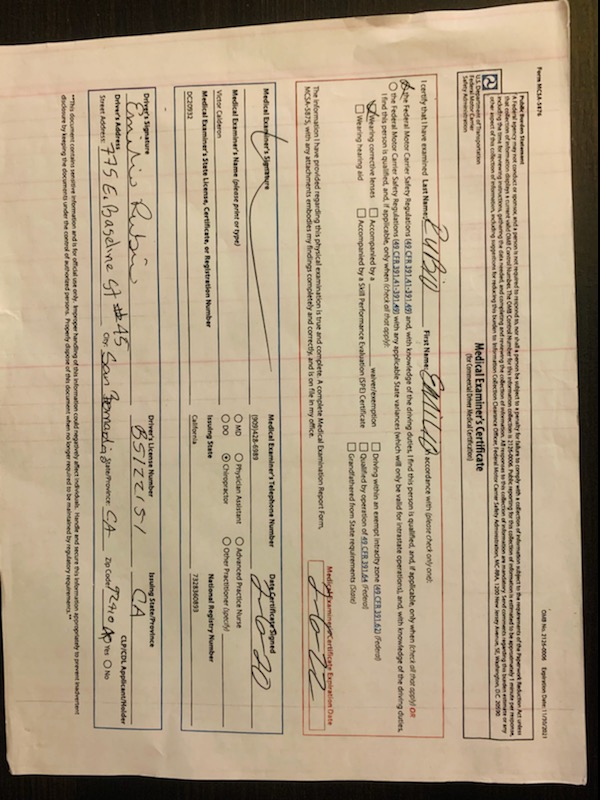 Form MCSA-5876
OMB No. 2126-0006 Expiration Date: 11/30/2021
Public Burden Statement
A Federal agency may not conduct or sponsor, and a person is not required to respond to, nor shall a person be subject to a penalty for failure to comply with a collection of information subject to the requirements of the Paperwork Reduction Act unless
that collection of information displays a current valid OMB Control Number. The OMB Control Number for this information collection is 2126-0006. Public reporting for this collection of information is estimated to be approximately 1 minute per response,
including the time for reviewing instructions, gathering the data needed, and completing and reviewing the collection of information. All responses to this collection of information are mandatory. Send comments regarding this burden estimate or any
other aspect of this collection of information, including suggestions for reducing this burden to: Information Collection Clearance Officer, Federal Motor Carrier Safety Administration, MC-RRA, 1200 New Jersey Avenue, SE, Washington, D.C. 20590.
U.S. Department of Transportation
Federal Motor Carrier
Safety Administration
Medical Examiner's Certificate
(for Commercial Driver Medical Certification)
I certify that I have examined Last Name: RUBIO First Name: EMILIO in accordance with (please check only one):
the Federal Motor Carrier Safety Regulations (49 CFR 391.41-391.49) and, with knowledge of the driving duties, I find this person is qualified, and, if applicable, only when (check all that apply) OR
the Federal Motor Carrier Safety Regulations (49 CFR 391.41-391.49) with any applicable State variances (which will only be valid for intrastate operations), and, with knowledge of the driving duties,
I find this person is qualified, and, if applicable, only when (check all that apply):
Wearing corrective lenses Accompanied by a waiver/exemption Driving within an exempt intracity zone (49 CFR 391.62) (Federal)
Wearing hearing aid Accompanied by a Skill Performance Evaluation (SPE) Certificate Qualified by operation of 49 CFR 391.64 (Federal)
Grandfathered from State requirements (State)
The information I have provided regarding this physical examination is true and complete. A complete Medical Examination Report Form,
MCSA-5875, with any attachments embodies my findings completely and correctly, and is on file in my office.
Medical Examiner's Certificate Expiration Date
2-6-22
Medical Examiner's Signature Medical Examiner's Telephone Number Date Certificate Signed
(909)428-6989 2-6-20
Medical Examiner's Name (please print or type)
Victor Calderon
MD Physician Assistant Advanced Practice Nurse
DO Chiropractor Other Practitioner (specify)
Medical Examiner's State License, Certificate, or Registration Number Issuing State National Registry Number
DC20932 California 7328360893
Driver's Signature Driver's License Number Issuing State/Province
Emilio Rubio B5122151 CA
Driver's Address CLP/CDL Applicant/Holder
Street Address: 775 E. Baseline St #45 City: San Bernardino State/Province: CA Zip Code: 92410 Yes No
**This document contains sensitive information and is for official use only. Improper handling of this information could negatively affect individuals. Handle and secure this information appropriately to prevent inadvertent
disclosure by keeping the documents under the control of authorized persons. Properly dispose of this document when no longer required to be maintained by regulatory requirements.**